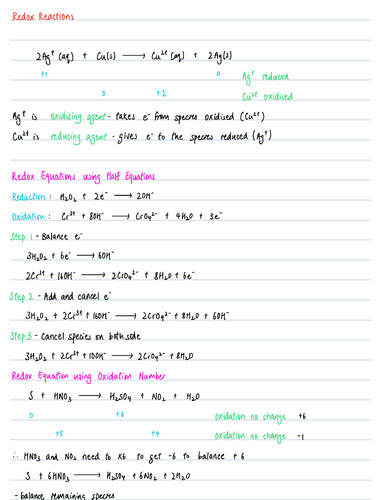 Redox Reactions
2Ag⁺ (aq) + Cu(s) ⟶ Cu²⁺ (aq) + 2Ag(s)
+1 0 Ag⁺ reduced
0 +2 Cu²⁺ oxidised
Ag⁺ is oxidising agent - takes e⁻ from species oxidised (Cu²⁺)
Cu²⁺ is reducing agent - gives e⁻ to the species reduced (Ag⁺)
Redox Equations using Half Equations
Reduction: H₂O₂ + 2e⁻ ⟶ 2OH⁻
Oxidation: Cr³⁺ + 8OH⁻ ⟶ CrO₄²⁻ + 4H₂O + 3e⁻
Step 1 - Balance e⁻
3H₂O₂ + 6e⁻ ⟶ 6OH⁻
2Cr³⁺ + 16OH⁻ ⟶ 2CrO₄²⁻ + 8H₂O + 6e⁻
Step 2 - Add and cancel e⁻
3H₂O₂ + 2Cr³⁺ + 16OH⁻ ⟶ 2CrO₄²⁻ + 8H₂O + 6OH⁻
Step 3 - Cancel species on both side
3H₂O₂ + 2Cr³⁺ + 10OH⁻ ⟶ 2CrO₄²⁻ + 8H₂O
Redox Equation using Oxidation Number
S + HNO₃ ⟶ H₂SO₄ + NO₂ + H₂O
0 +6 oxidation no change +6
+5 +4 oxidation no change -1
∴ HNO₃ and NO₂ need to x6 to get -6 to balance +6
S + 6HNO₃ ⟶ H₂SO₄ + 6NO₂ + 2H₂O
- balance remaining species